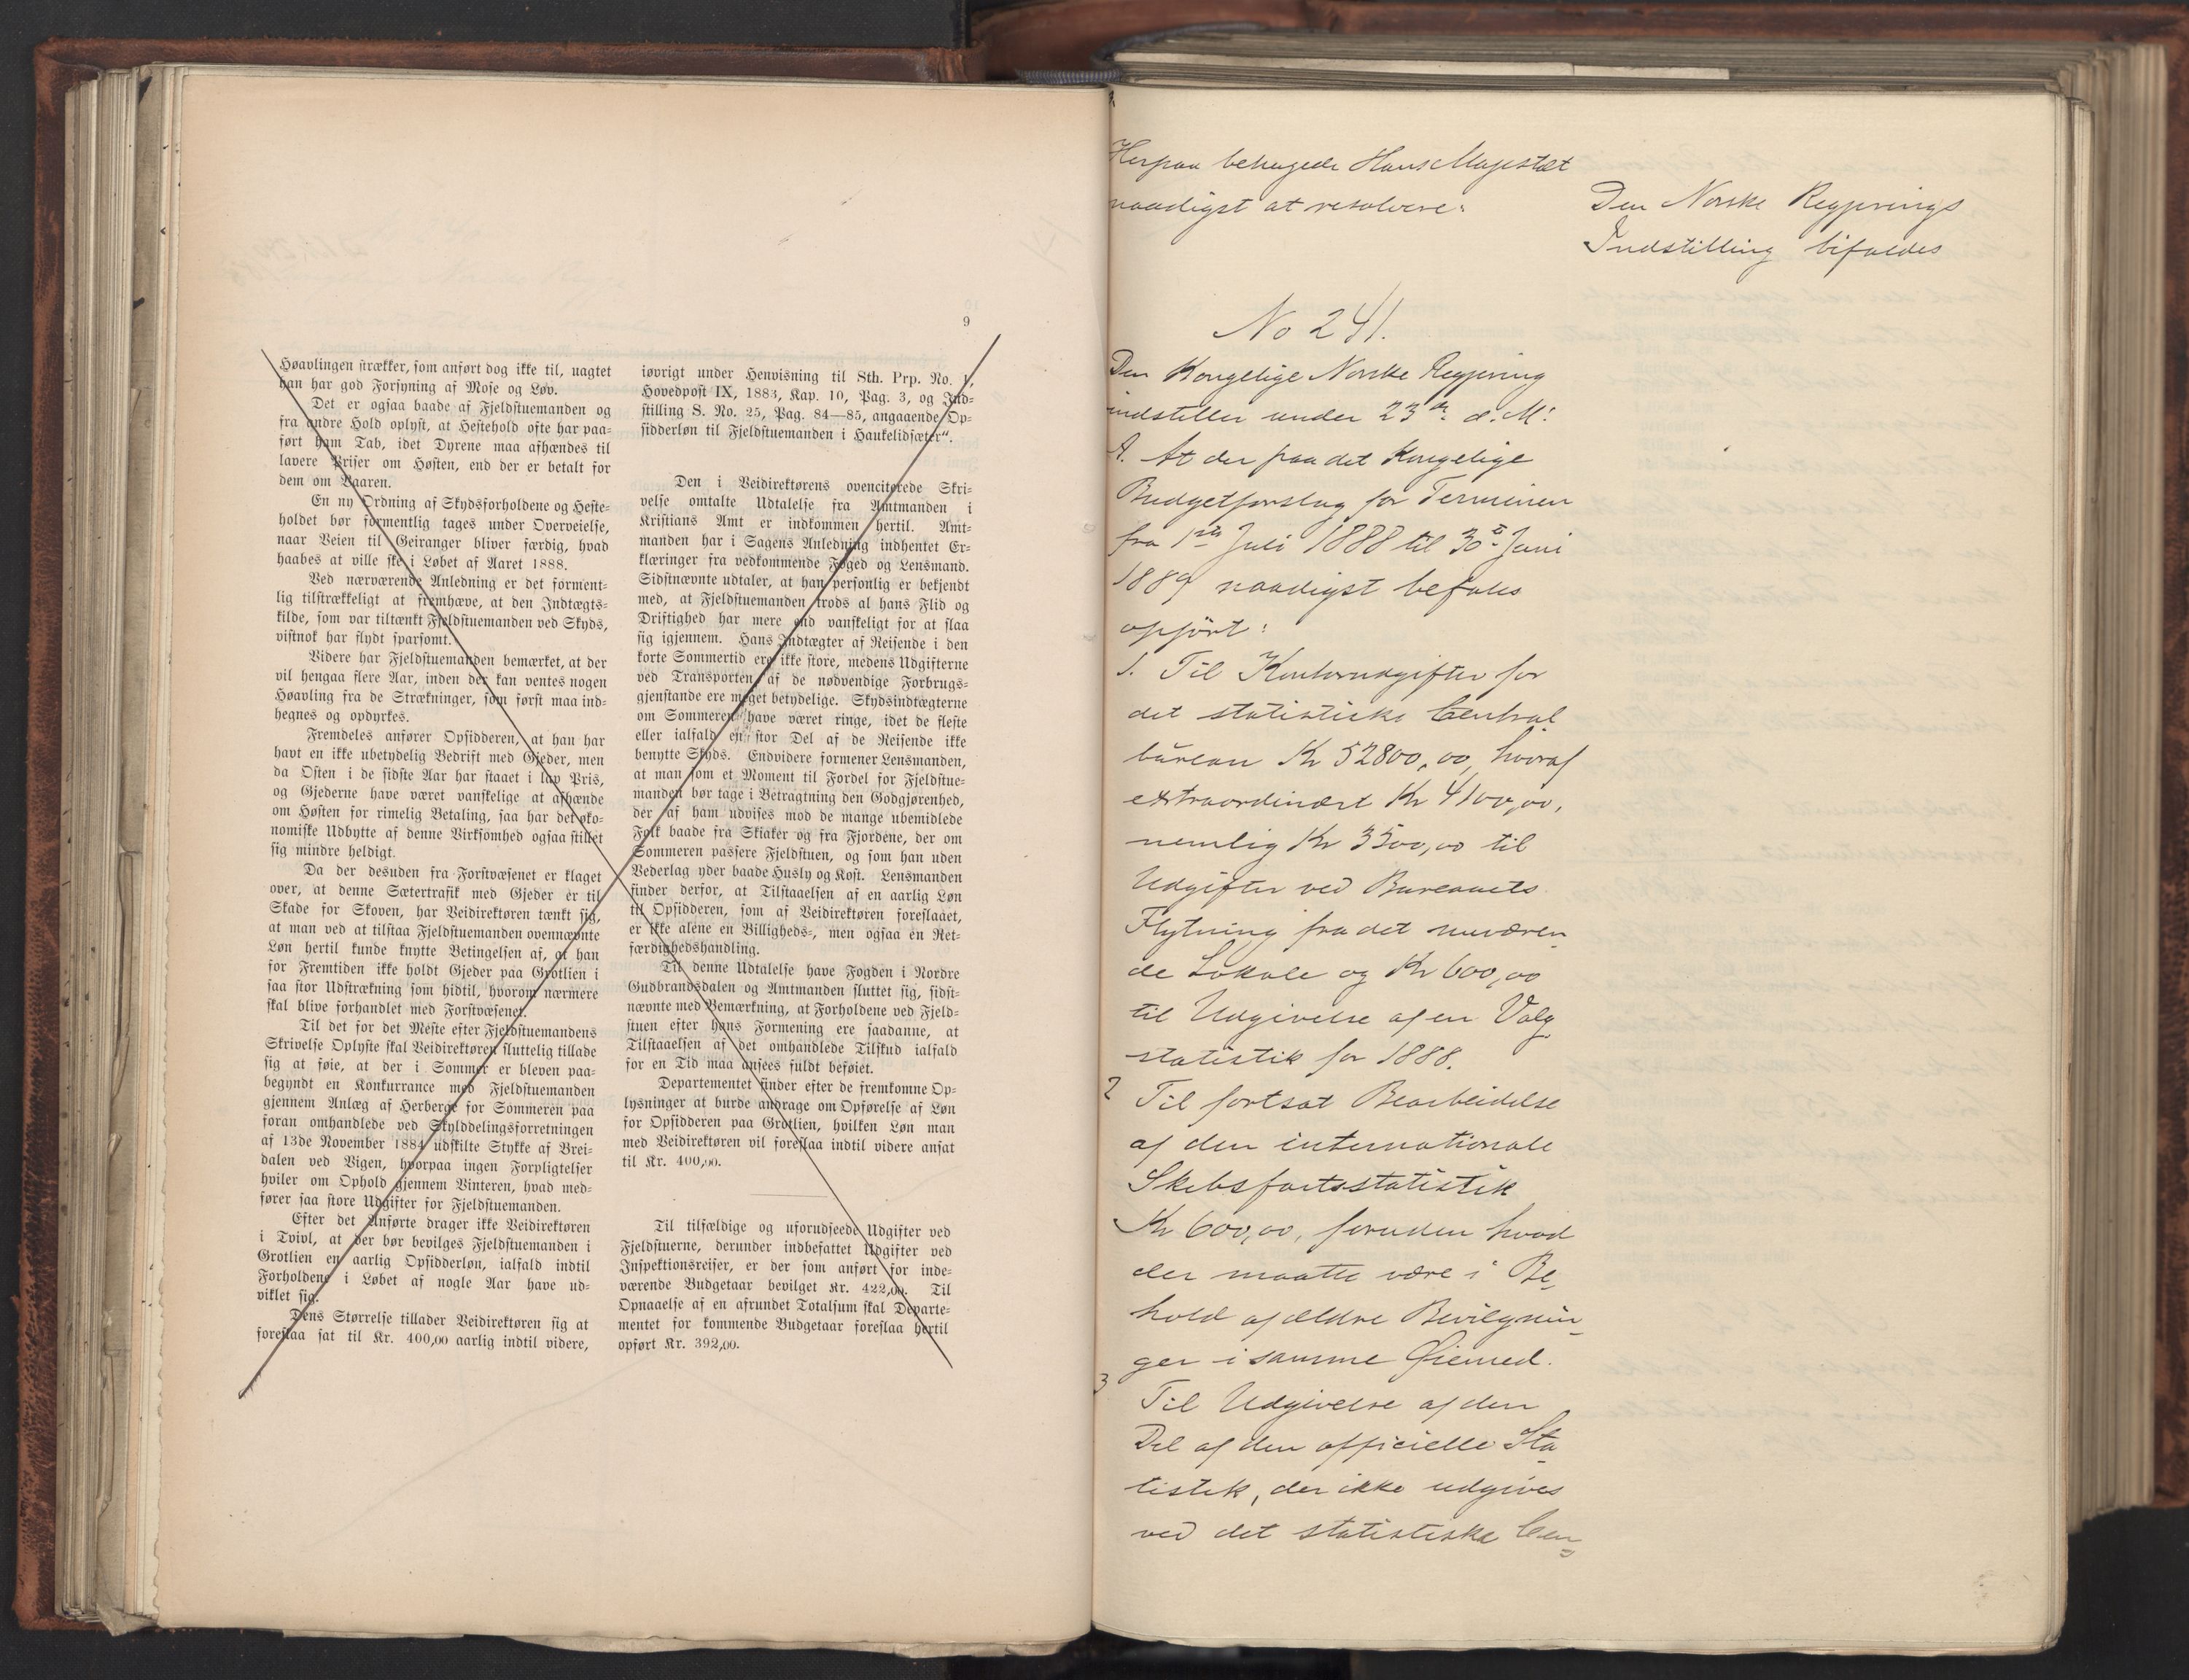 9
Høavlingen strækker, som anført dog ikke til, uagtet
han har god Forsyning af Mose og Løv.
Det er ogsaa baade af Fjeldstuemanden og
fra andre Hold oplyst, at Hestehold ofte har paa-
ført ham Tab, idet Dyrene maa afhændes til
lavere Priser om Høsten, end der er betalt for
dem om Vaaren.
En ny Ordning af Skydsforholdene og Heste-
holdet bør formentlig tages under Overveielse,
naar Veien til Geiranger bliver færdig, hvad
haabes at ville ske i Løbet af Aaret 1888.
Ved nærværende Anledning er det forment-
lig tilstrækkeligt at fremhæve, at den Indtægts-
kilde, som var tiltænkt Fjeldstuemanden ved Skyds,
vistnok har flydt sparsomt.
Videre har Fjeldstuemanden bemærket, at der
vil hengaa flere Aar, inden der kan ventes nogen
Høavling fra de Strækninger, som først maa ind-
hegnes og opdyrkes.
Fremdeles anfører Opsidderen, at han har
havt en ikke ubetydelig Bedrift med Gjeder, men
da Osten i de sidste Aar har staaet i lav Pris,
og Gjederne have været vanskelige at afhænde
om Høsten for rimelig Betaling, saa har det øko-
nomiske Udbytte af denne Virksomhed ogsaa stillet
sig mindre heldigt.
Da der desuden fra Forstvæsenet er klaget
over, at denne Sætertrafik med Gjeder er til
Skade for Skoven, har Veidirektøren tænkt sig,
at man ved at tilstaa Fjeldstuemanden ovennævnte
Løn hertil kunde knytte Betingelsen af, at han
for Fremtiden ikke holdt Gjeder paa Grotlien i
saa stor Udstrækning som hidtil, hvorom nærmere
skal blive forhandlet med Forstvæsenet.
Til det for det Meste efter Fjeldstuemandens
Skrivelse Oplyste skal Veidirektøren sluttelig tillade
sig at føie, at der i Sommer er bleven paa-
begyndt en Konkurrance med Fjeldstuemanden
gjennem Anlæg af Herberge for Sommeren paa
foran omhandlede ved Skylddelingsforretningen
af 13de November 1884 udskilte Stykke af Brei-
dalen ved Vigen, hvorpaa ingen Forpligtelser
hviler om Ophold gjennem Vinteren, hvad med-
fører saa store Udgifter for Fjeldstuemanden.
Efter det Anførte drager ikke Veidirektøren
i Tvivl, at der bør bevilges Fjeldstuemanden i
Grotlien en aarlig Opsidderløn, ialfald indtil
Forholdene i Løbet af nogle Aar have ud-
viklet sig.
Dens Størrelse tillader Veidirektøren sig at
foreslaa sat til Kr. 400,00 aarlig indtil videre,
iøvrigt under Henvisning til Sth. Prp. No. 1,
Hovedpost IX, 1883, Kap. 10, Pag. 3, og Ind-
stilling S. No. 25, Pag. 84—85, angaaende Op-
sidderløn til Fjeldstuemanden i Haukelidsæter“.
Den i Veidirektørens ovenciterede Skri-
velse omtalte Udtalelse fra Amtmanden i
Kristians Amt er indkommen hertil. Amt-
manden har i Sagens Anledning indhentet Er-
klæringer fra vedkommende Foged og Lensmand.
Sidstnævnte udtaler, at han personlig er bekjendt
med, at Fjeldstuemanden trods al hans Flid og
Driftighed har mere end vanskeligt for at slaa
sig igjennem. Hans Indtægter af Reisende i den
korte Sommertid ere ikke store, medens Udgifterne
ved Transporten af de nødvendige Forbrugs-
gjenstande ere meget betydelige. Skydsindtægterne
om Sommeren have været ringe, idet de fleste
eller ialfald en stor Del af de Reisende ikke
benytte Skyds. Endvidere formener Lensmanden,
at man som et Moment til Fordel for Fjeldstue-
manden bør tage i Betragtning den Godgjørenhed,
der af ham udvises mod de mange ubemidlede
Folk baade fra Skiaker og fra Fjordene, der om
Sommeren passere Fjeldstuen, og som han uden
Vederlag yder baade Husly og Kost. Lensmanden
finder derfor, at Tilstaaelsen af en aarlig Løn
til Opsidderen, som af Veidirektøren foreslaaet,
er ikke alene en Billigheds-, men ogsaa en Ret-
færdighedshandling.
Til denne Udtalelse have Fogden i Nordre
Gudbrandsdalen og Amtmanden sluttet sig, sidst-
nævnte med Bemærkning, at Forholdene ved Fjeld-
stuen efter hans Formening ere saadanne, at
Tilstaaelsen af det omhandlede Tilskud ialfald
for en Tid maa ansees fuldt beføiet.
Departementet finder efter de fremkomne Op-
lysninger at burde andrage om Opførelse af Løn
for Opsidderen paa Grotlien, hvilken Løn man
med Veidirektøren vil foreslaa indtil videre ansat
til Kr. 400,00.
Til tilfældige og uforudseede Udgifter ved
Fjeldstuerne, derunder indbefattet Udgifter ved
Inspektionsreiser, er der som anført for inde-
værende Budgetaar bevilget Kr. 422,00. Til
Opnaaelse af en afrundet Totalsum skal Departe-
mentet for kommende Budgetaar foreslaa hertil
opført Kr. 392,00.
Herpaa behagede Hans Majestæt
naadigst at resolvere:
Den Norske Regjerings
Indstilling bifaldes
No 241.
Den Kongelige Norske Regjering
indstiller under 23de d. M:
A. At der paa det Kongelige
Budgetforslag for Terminen
fra 1ste Juli 1888 til 30te Juni
1889 naadigst befales
opført:
1. Til Kontorudgifter for
det statistiske Central
büreau Kr 52800,00, hvoraf
extraordinært Kr 4100,00,
nemlig Kr 3500,00 til
Udgifter ved Bureauets
Flytning fra det nuværen-
de Lokale og Kr 600,00
til Udgivelse af en Valg
statistik for 1888.
2 Til fortsat Bearbeidelse
af den internationale
Skibsfartsstatistik
Kr 600,00, foruden hvad
der maatte være i Be-
hold af ældre Bevilgnin-
ger i samme Øiemed.
3
Til Udgivelse af den
Del af den officielle Sta-
tistik, der ikke udgives
ved det statistiske Cen=